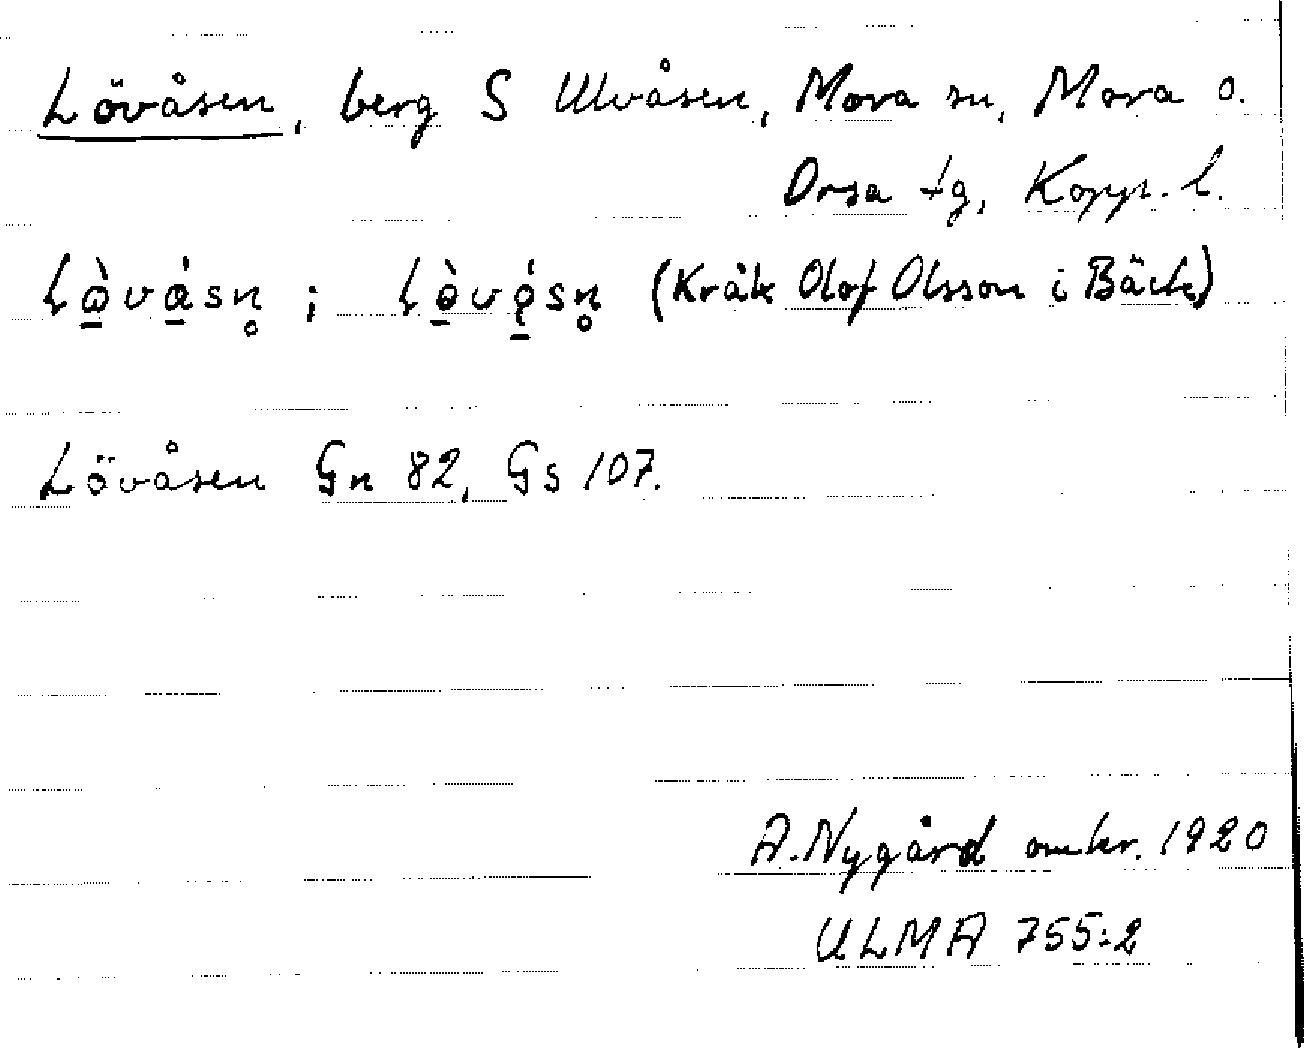 Lövåsen, berg S Ulvåsen, Mora sn, Mora o.
Orsa tg, Kopp. l.
Lö̠̀vá̠sn̥ ; Lö̠̀vǫ̠́sn̥ (Kråk Olof Olsson i Bäck)
Lövåsen Gn 82, Gs 107.
A. Nygård omkr. 1920
ULMA 755:2